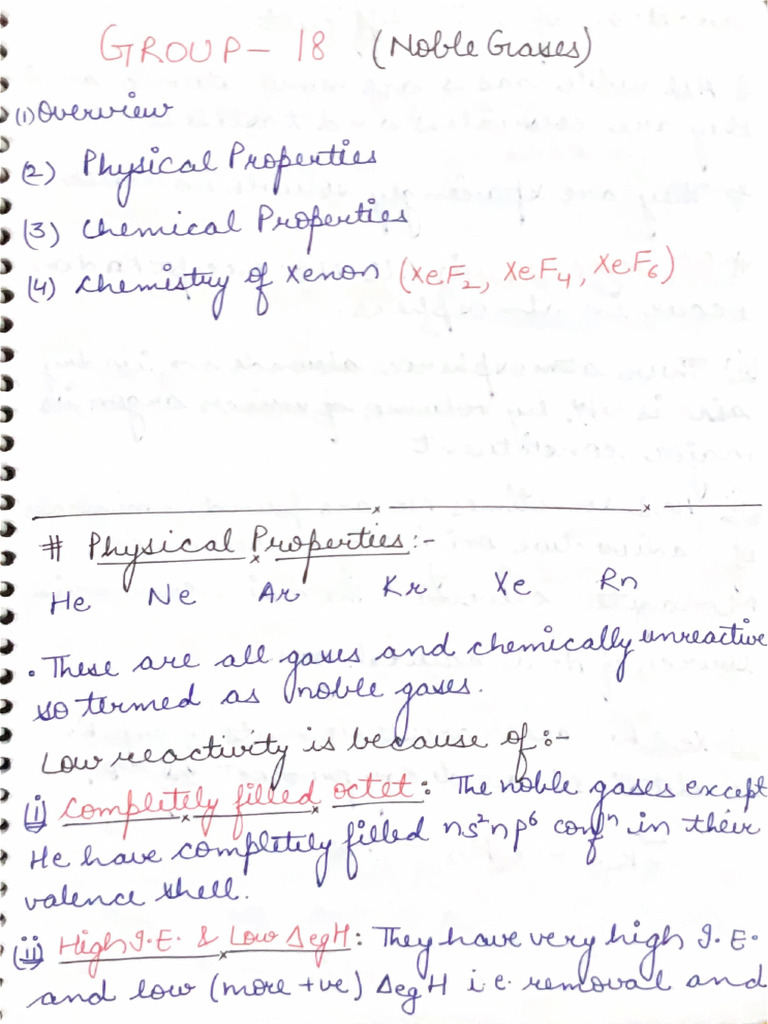 GROUP- 18 (Noble Gases)
(1) Overview
(2) Physical Properties
(3) Chemical Properties
(4) Chemistry of Xenon (XeF₂, XeF₄, XeF₆)
# Physical Properties:-
He Ne Ar Kr Xe Rn
• These are all gases and chemically unreactive
so termed as noble gases.
Low reactivity is because of :-
(i) Completely filled octet: The noble gases except
He have completely filled ns²np⁶ confⁿ in their
valence shell.
(ii) High I.E. & Low ΔegH: They have very high I.E.
and low (more +ve) ΔegH i.e. removal and